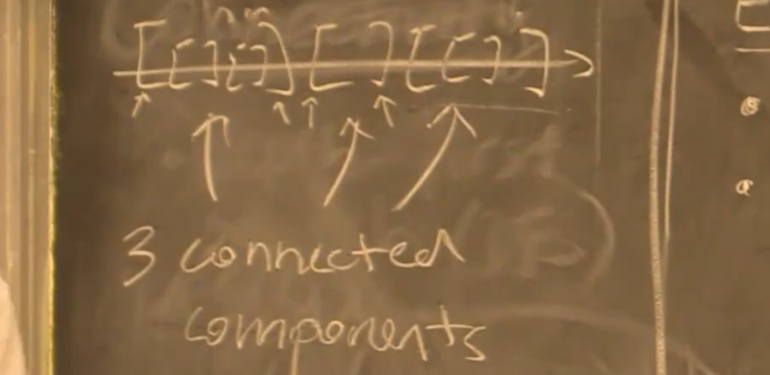 [ [ ] [ ] ] [ ] [ [ ] ]
3 connected
components